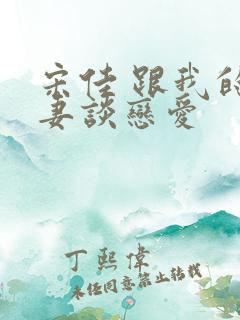 宋佳跟我的
妻談戀愛
丁熙偉
未經同意禁止轉載